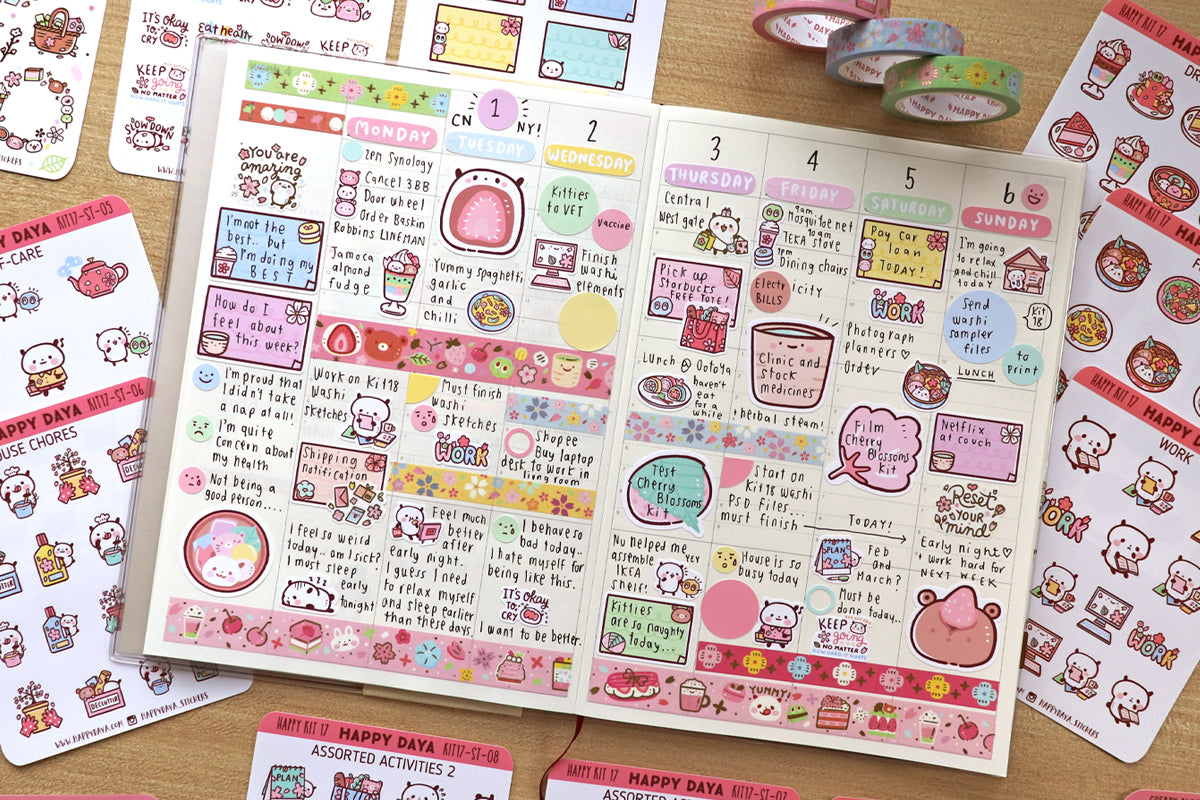 IT'S OKAY
TO
CRY
eat healthy
SLOW DOWN
KEEP
going
KEEP
going
NO MATTER
HOW HARD IT HURTS
SLOW DOWN
STICKERS
HAPPY DAYA
HAPPY KIT 17
HAPPY DAYA KIT17-ST-05
F-CARE
HAPPY DAYA KIT17-ST-06
OUSE CHORES
DECLUTTER
DECLUTTER
WWW.HAPPYDAYA.COM HAPPYDAYA_STICKERS
You are
amazing
I'm not the
best.. but
I'm doing my
BEST
How do I
feel about
this week?
I'm proud that
I didn't take
a nap at all!
I'm quite
concern about
my health
Not being a
good person....
MONDAY
2pm Synology
Cancel 3BB
Door wheel
Order Baskin
Robbins LINEMAN
Jamoca
almond
fudge
Work on Kit18
washi
sketches
Shipping
notification
I feel so weird
today.. am I sick?
I must sleep
early
tonight
1
CN NY!
TUESDAY
Yummy spaghetti
garlic
and
chilli
Must finish
washi
sketches
WORK
Feel much
better
after
early night.
I guess I need
to relax myself
and sleep earlier
than these days.
2
WEDNESDAY
Kitties
to VET
vaccine
Finish
washi
elements
Shopee
Buy laptop
desk to work in
living room
I behave so
bad today..
I hate myself for
being like this.
IT'S OKAY
TO
CRY
I want to be better.
3
THURSDAY
Central
west gate
Pick up
Starbucks
FREE TOTE!
Lunch @ Ootoya
haven't
eat
for a
while
Test
Cherry
Blossoms
Kit
Nu helped me
assemble
IKEA
shelf!
YEY
Kitties
are so naughty
today...
4
FRIDAY
9am
Mosquitoe net
10am
TEKA stove
1pm
Dining chairs
Electricity
BILLS
Clinic and
stock
medicines
+herbal steam!
Start on
Kit18 washi
PSD files...
must finish
TODAY!
House is so
busy today
5
SATURDAY
Pay car
loan
TODAY!
WORK
Photograph
planners
Order
Film
Cherry
Blossoms
Kit
PLAN
Feb
and
March?
Must be
done today..
KEEP
going
NO MATTER
HOW HARD IT HURTS
6
SUNDAY
I'm going
to relax
and chill
today
Send
washi
sampler
files
Kit
18
to
print
LUNCH
Netflix
at couch
Reset
YOUR
mind
Early night
+ work hard for
NEXT WEEK
YUMMY!
HAPPY KIT 17
HAPPY KIT 17
HAPPY KIT 17 HAPPY
WORK
WORK
WORK
HAPPYDAYA_STICKERS
HAPPY KIT 17 HAPPY DAYA KIT17-ST-08
ASSORTED ACTIVITIES 2
PLAN
HAPPY KIT 17 HAPPY DAYA KIT17-ST-07